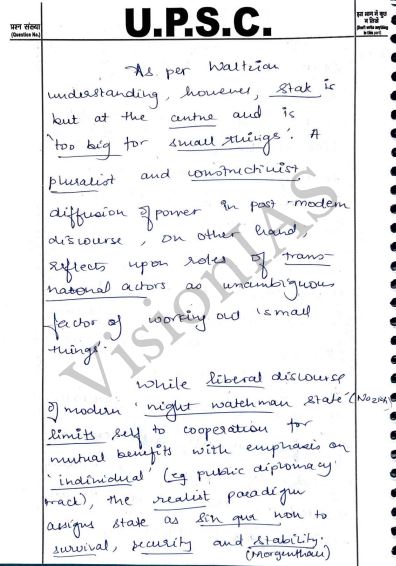 प्रश्न संख्या
(Question No.)
U.P.S.C.
इस भाग में कुछ
न लिखें
As per Waltzian
understanding, however, state is
but at the centre and is
'too big for small things'. A
pluralist and constructivist
diffusion of power in post-modern
discourse, on other hand,
reflects upon roles of trans-
national actors as unambiguous
factor of working out 'small
things'.
While liberal discourse
of modern 'night watchman state' (Nozick)
limits self to cooperation for
mutual benefits with emphasis on
'individual' (eg public diplomacy
track), the realist paradigm
assigns state as sin qua non to
survival, security and stability.
(Morgenthau)
VisionIAS